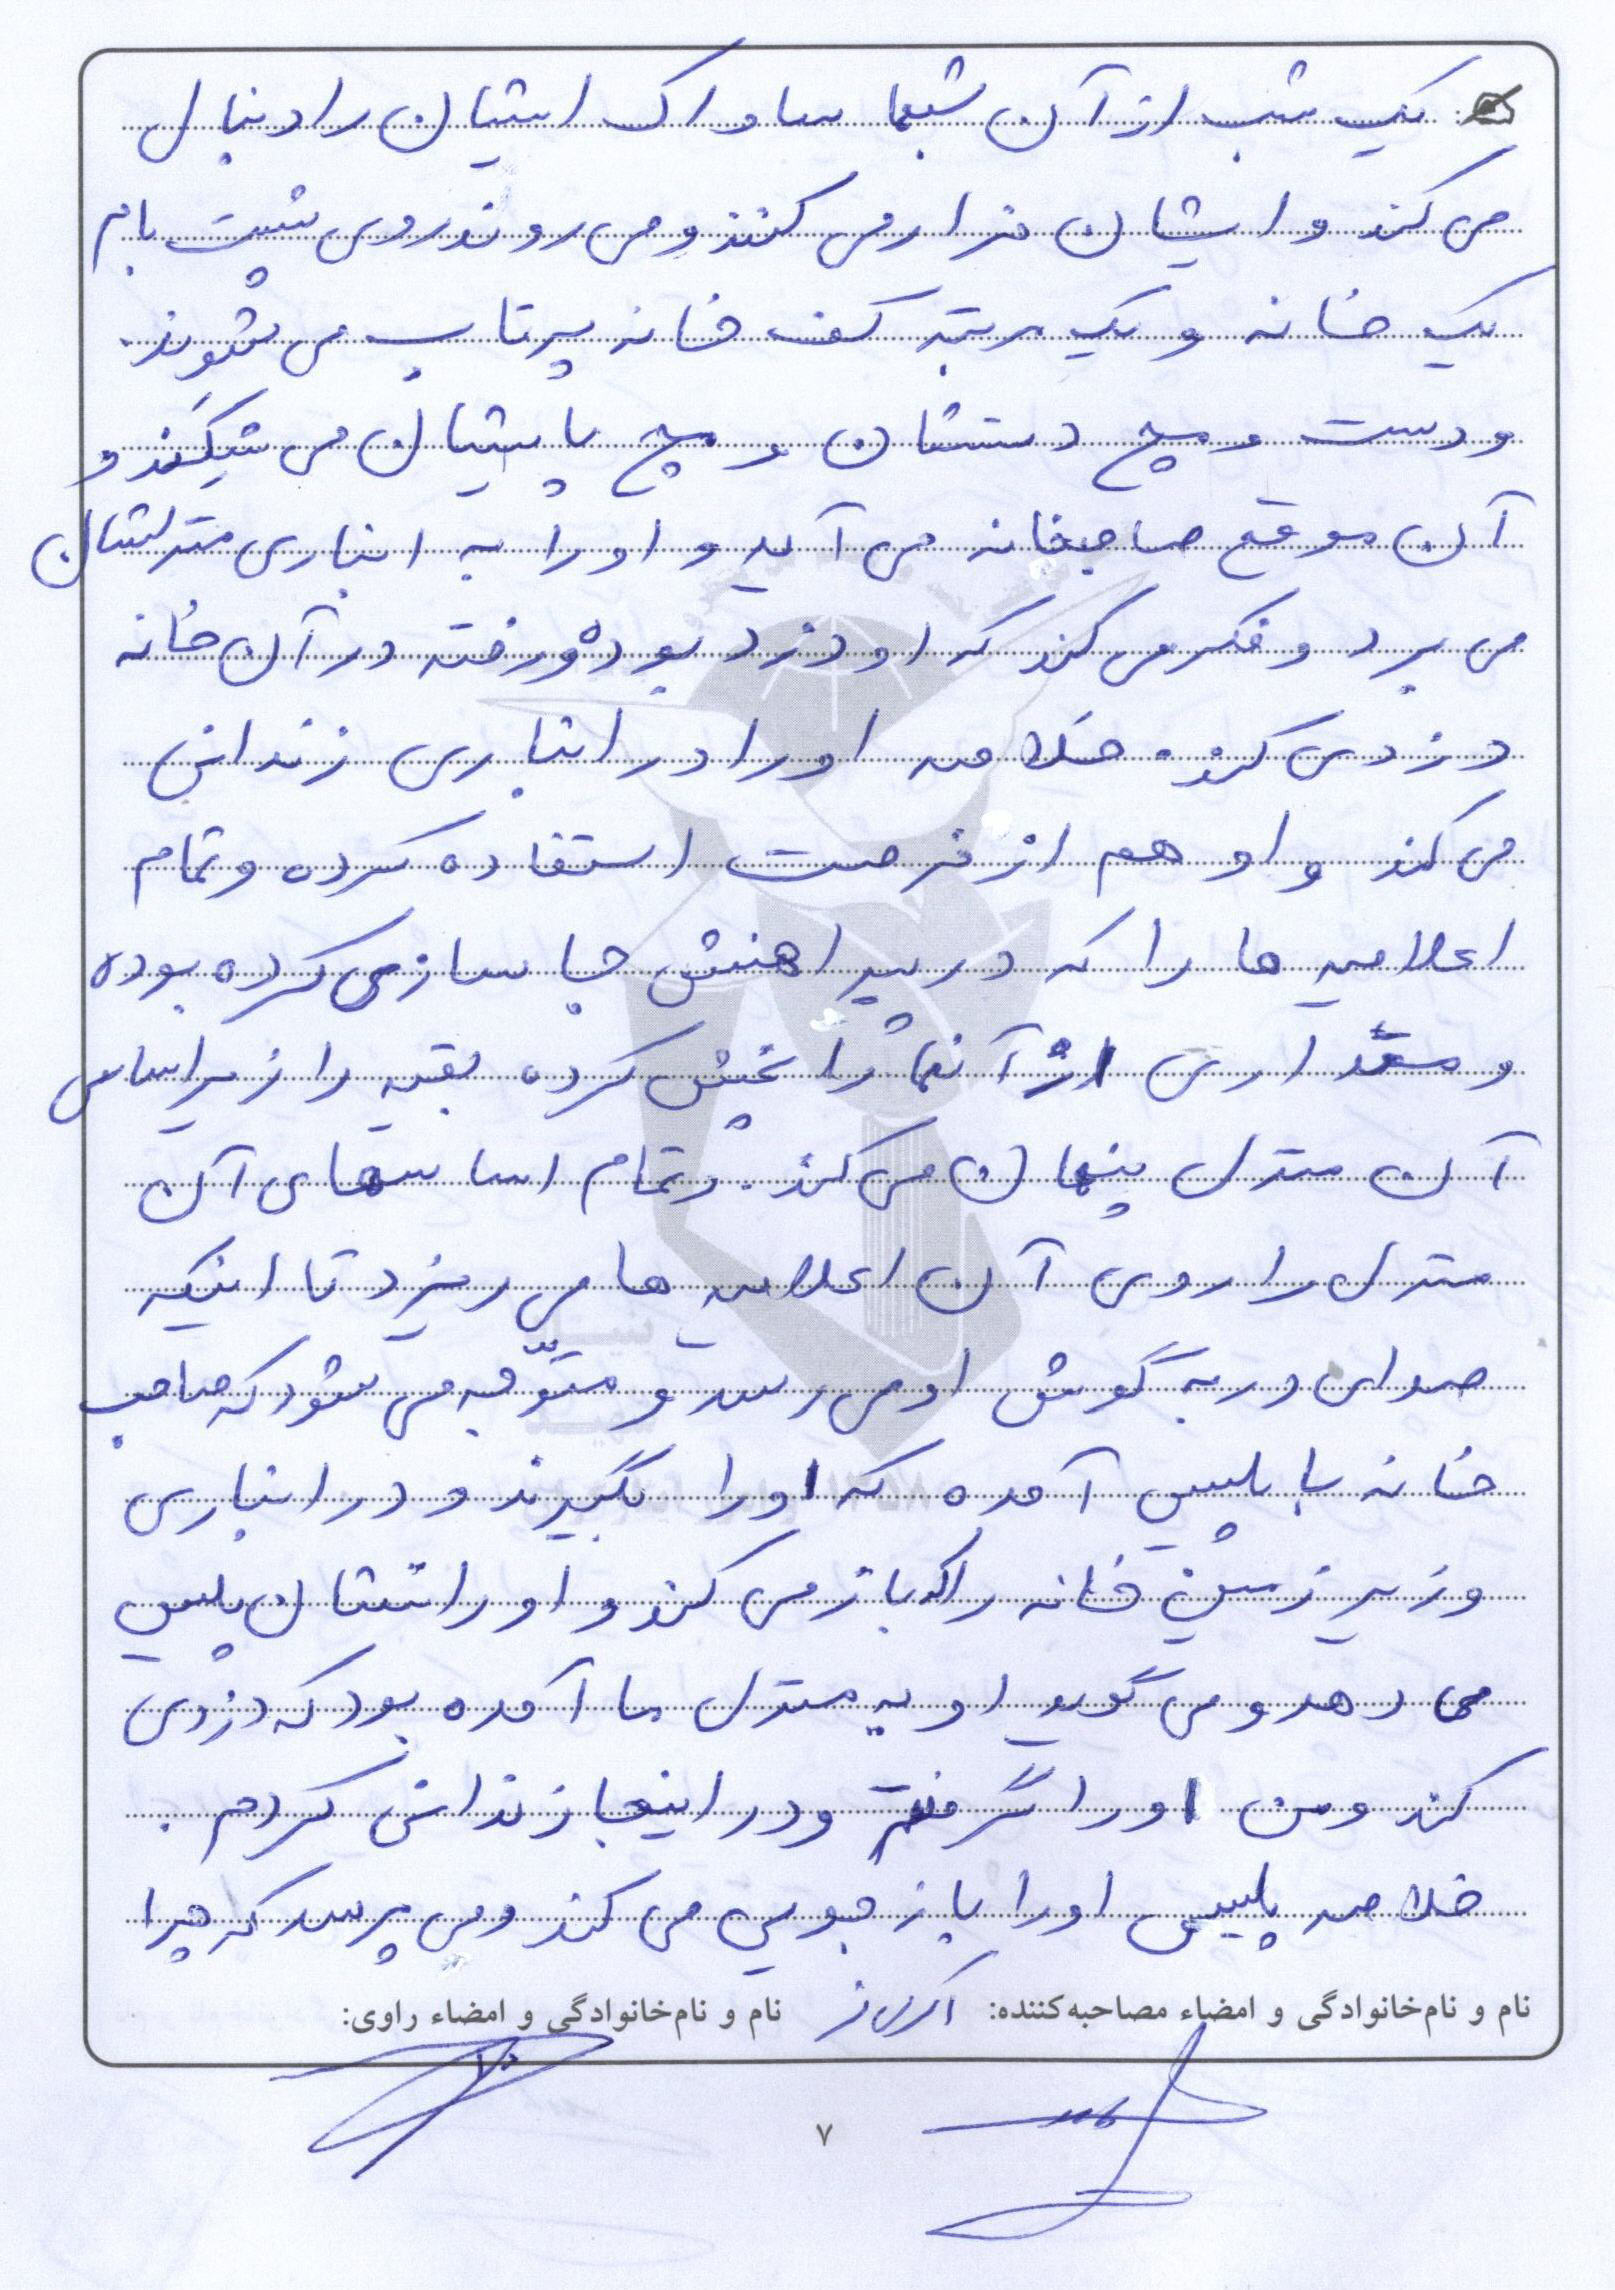 یک شب از آن شبها ساواک ایشان را دنبال
می کند و ایشان فرار می کنند و می روند روی پشت بام
یک خانه و یک مرتبه کف خانه پرتاب می شوند.
و دست و مچ دستشان و مچ پایشان می شکند و
آن موقع صاحبخانه می آید و او را به انباری منزلشان
می برد و فکر می کند که او دزد بوده و رفته در آن خانه
دزدی کند. خلاصه او را در انباری زندانی
می کند و او هم از فرصت استفاده کرده و تمام
اعلامیه ها را که در پیراهنش جا سازی کرده بوده
و مقداری از آنها را پخش کرده بقیه را زیر اساس
آن منزل پنهان می کند. و تمام اساسهای آن
منزل را روی آن اعلامیه ها می ریزد تا اینکه
صدای در به گوش او می رسد و متوّجه می شود که صاحب
خانه با پلیس آمده که او را بگیرند و در انباری
و زیر زمین خانه را که باز می کند و او را نشان پلیس
می دهد و می گوید او به منزل ما آمده بود که دزدی
کند و من او را گرفتم و در اینجا زندانی کردم.
خلاصه پلیس او را بازجویی می کند و می پرسد که چرا
نام و نام‌خانوادگی و امضاء مصاحبه‌کننده: نام و نام‌خانوادگی و امضاء راوی:
۷